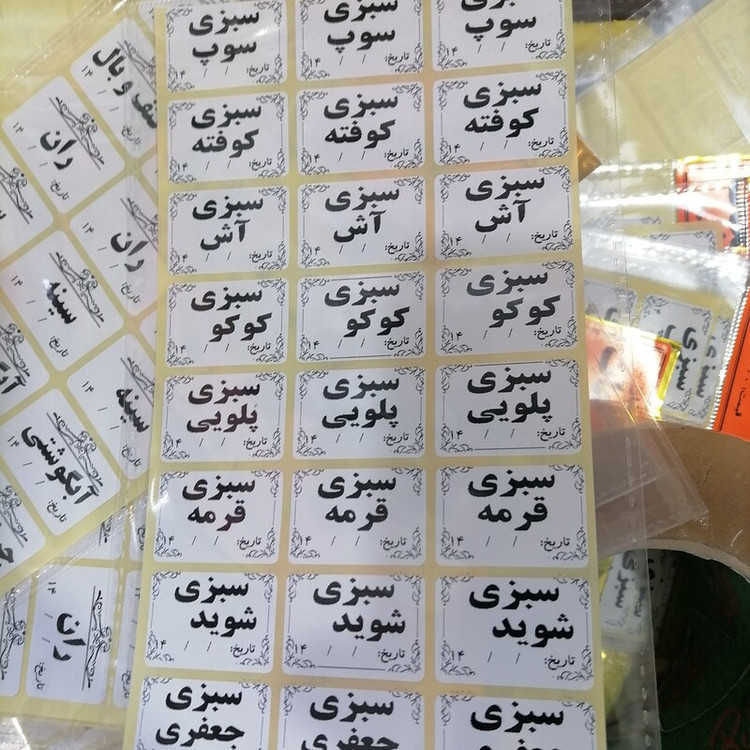 سبزی سوپ تاریخ: / / ۱۴
سبزی سوپ تاریخ: / / ۱۴
سبزی سوپ تاریخ: / / ۱۴
سبزی کوفته تاریخ: / / ۱۴
سبزی کوفته تاریخ: / / ۱۴
سبزی کوفته تاریخ: / / ۱۴
سبزی آش تاریخ: / / ۱۴
سبزی آش تاریخ: / / ۱۴
سبزی آش تاریخ: / / ۱۴
سبزی کوکو تاریخ: / / ۱۴
سبزی کوکو تاریخ: / / ۱۴
سبزی کوکو تاریخ: / / ۱۴
سبزی پلویی تاریخ: / / ۱۴
سبزی پلویی تاریخ: / / ۱۴
سبزی پلویی تاریخ: / / ۱۴
سبزی قرمه تاریخ: / / ۱۴
سبزی قرمه تاریخ: / / ۱۴
سبزی قرمه تاریخ: / / ۱۴
سبزی شوید تاریخ: / / ۱۴
سبزی شوید تاریخ: / / ۱۴
سبزی شوید تاریخ: / / ۱۴
سبزی جعفری
سبزی جعفری
سبزی
و بال تاریخ: / / ۱۴
ران تاریخ: / / ۱۴
ران تاریخ: / / ۱۴
سینه تاریخ: / / ۱۴
سینه تاریخ: / / ۱۴
آبگوشتی تاریخ: / / ۱۴
ران تاریخ: / / ۱۴
سبزی
سبزی
قیمت: